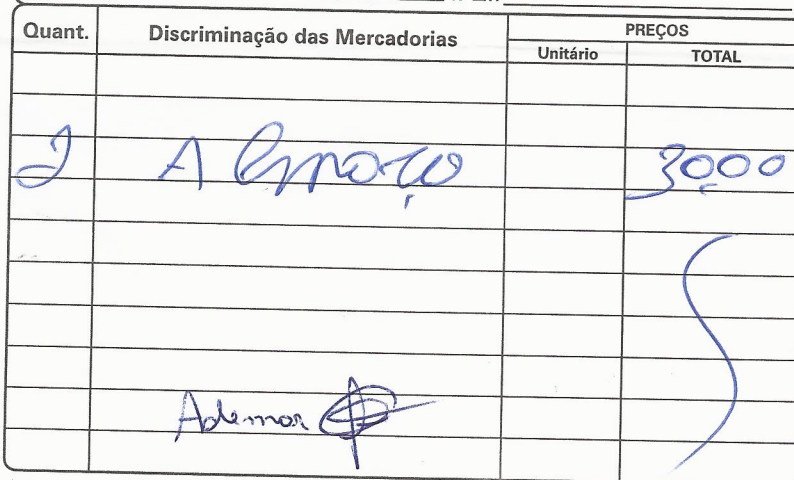 Quant. Discriminação das Mercadorias PREÇOS
Unitário TOTAL
2 Almoço 30,00
Ademar